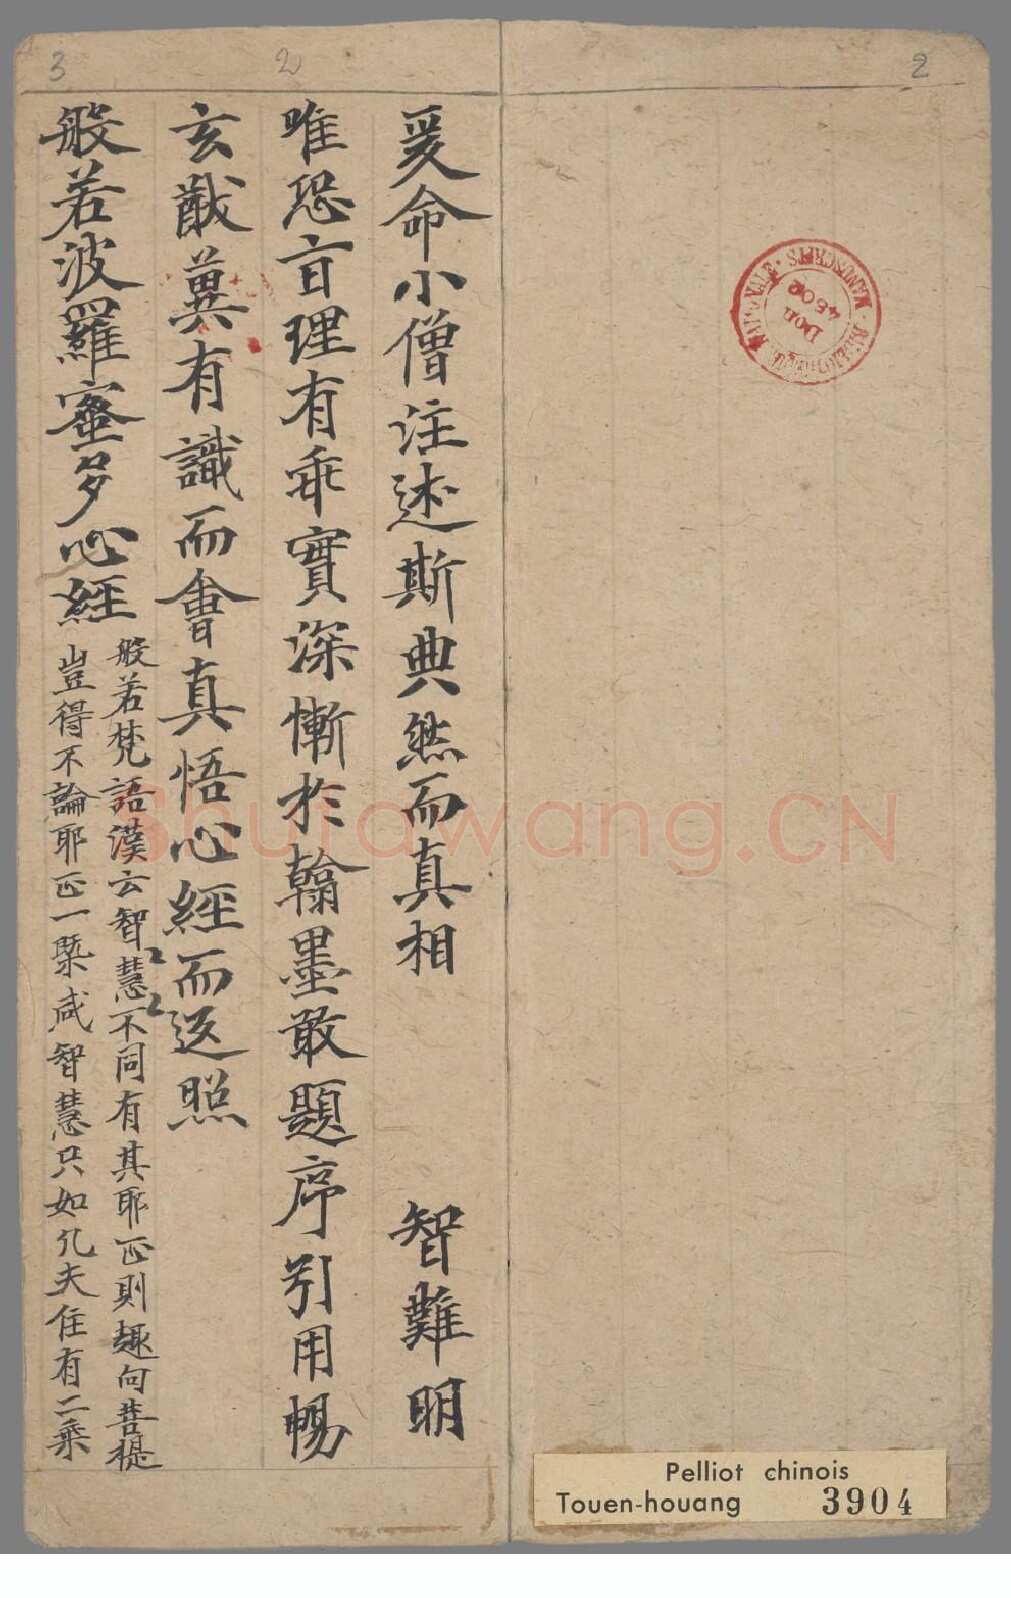 爰命小僧注述斯典然而真相 智難明
唯恐盲理有乖實深慚於翰墨敢題序引用暢
玄猷冀有識而會真悟心經而返照
般若波羅蜜多心經
般若梵語漢云智慧〻〻不同有其耶正則趣向菩提
豈得不論耶正一槩咸智慧只如凡夫住有二乘
2
2
3
BIBLIOTHÈQUE NATIONALE · MANUSCRITS
Don
4502
Shufawang.CN
Pelliot chinois
Touen-houang 3904